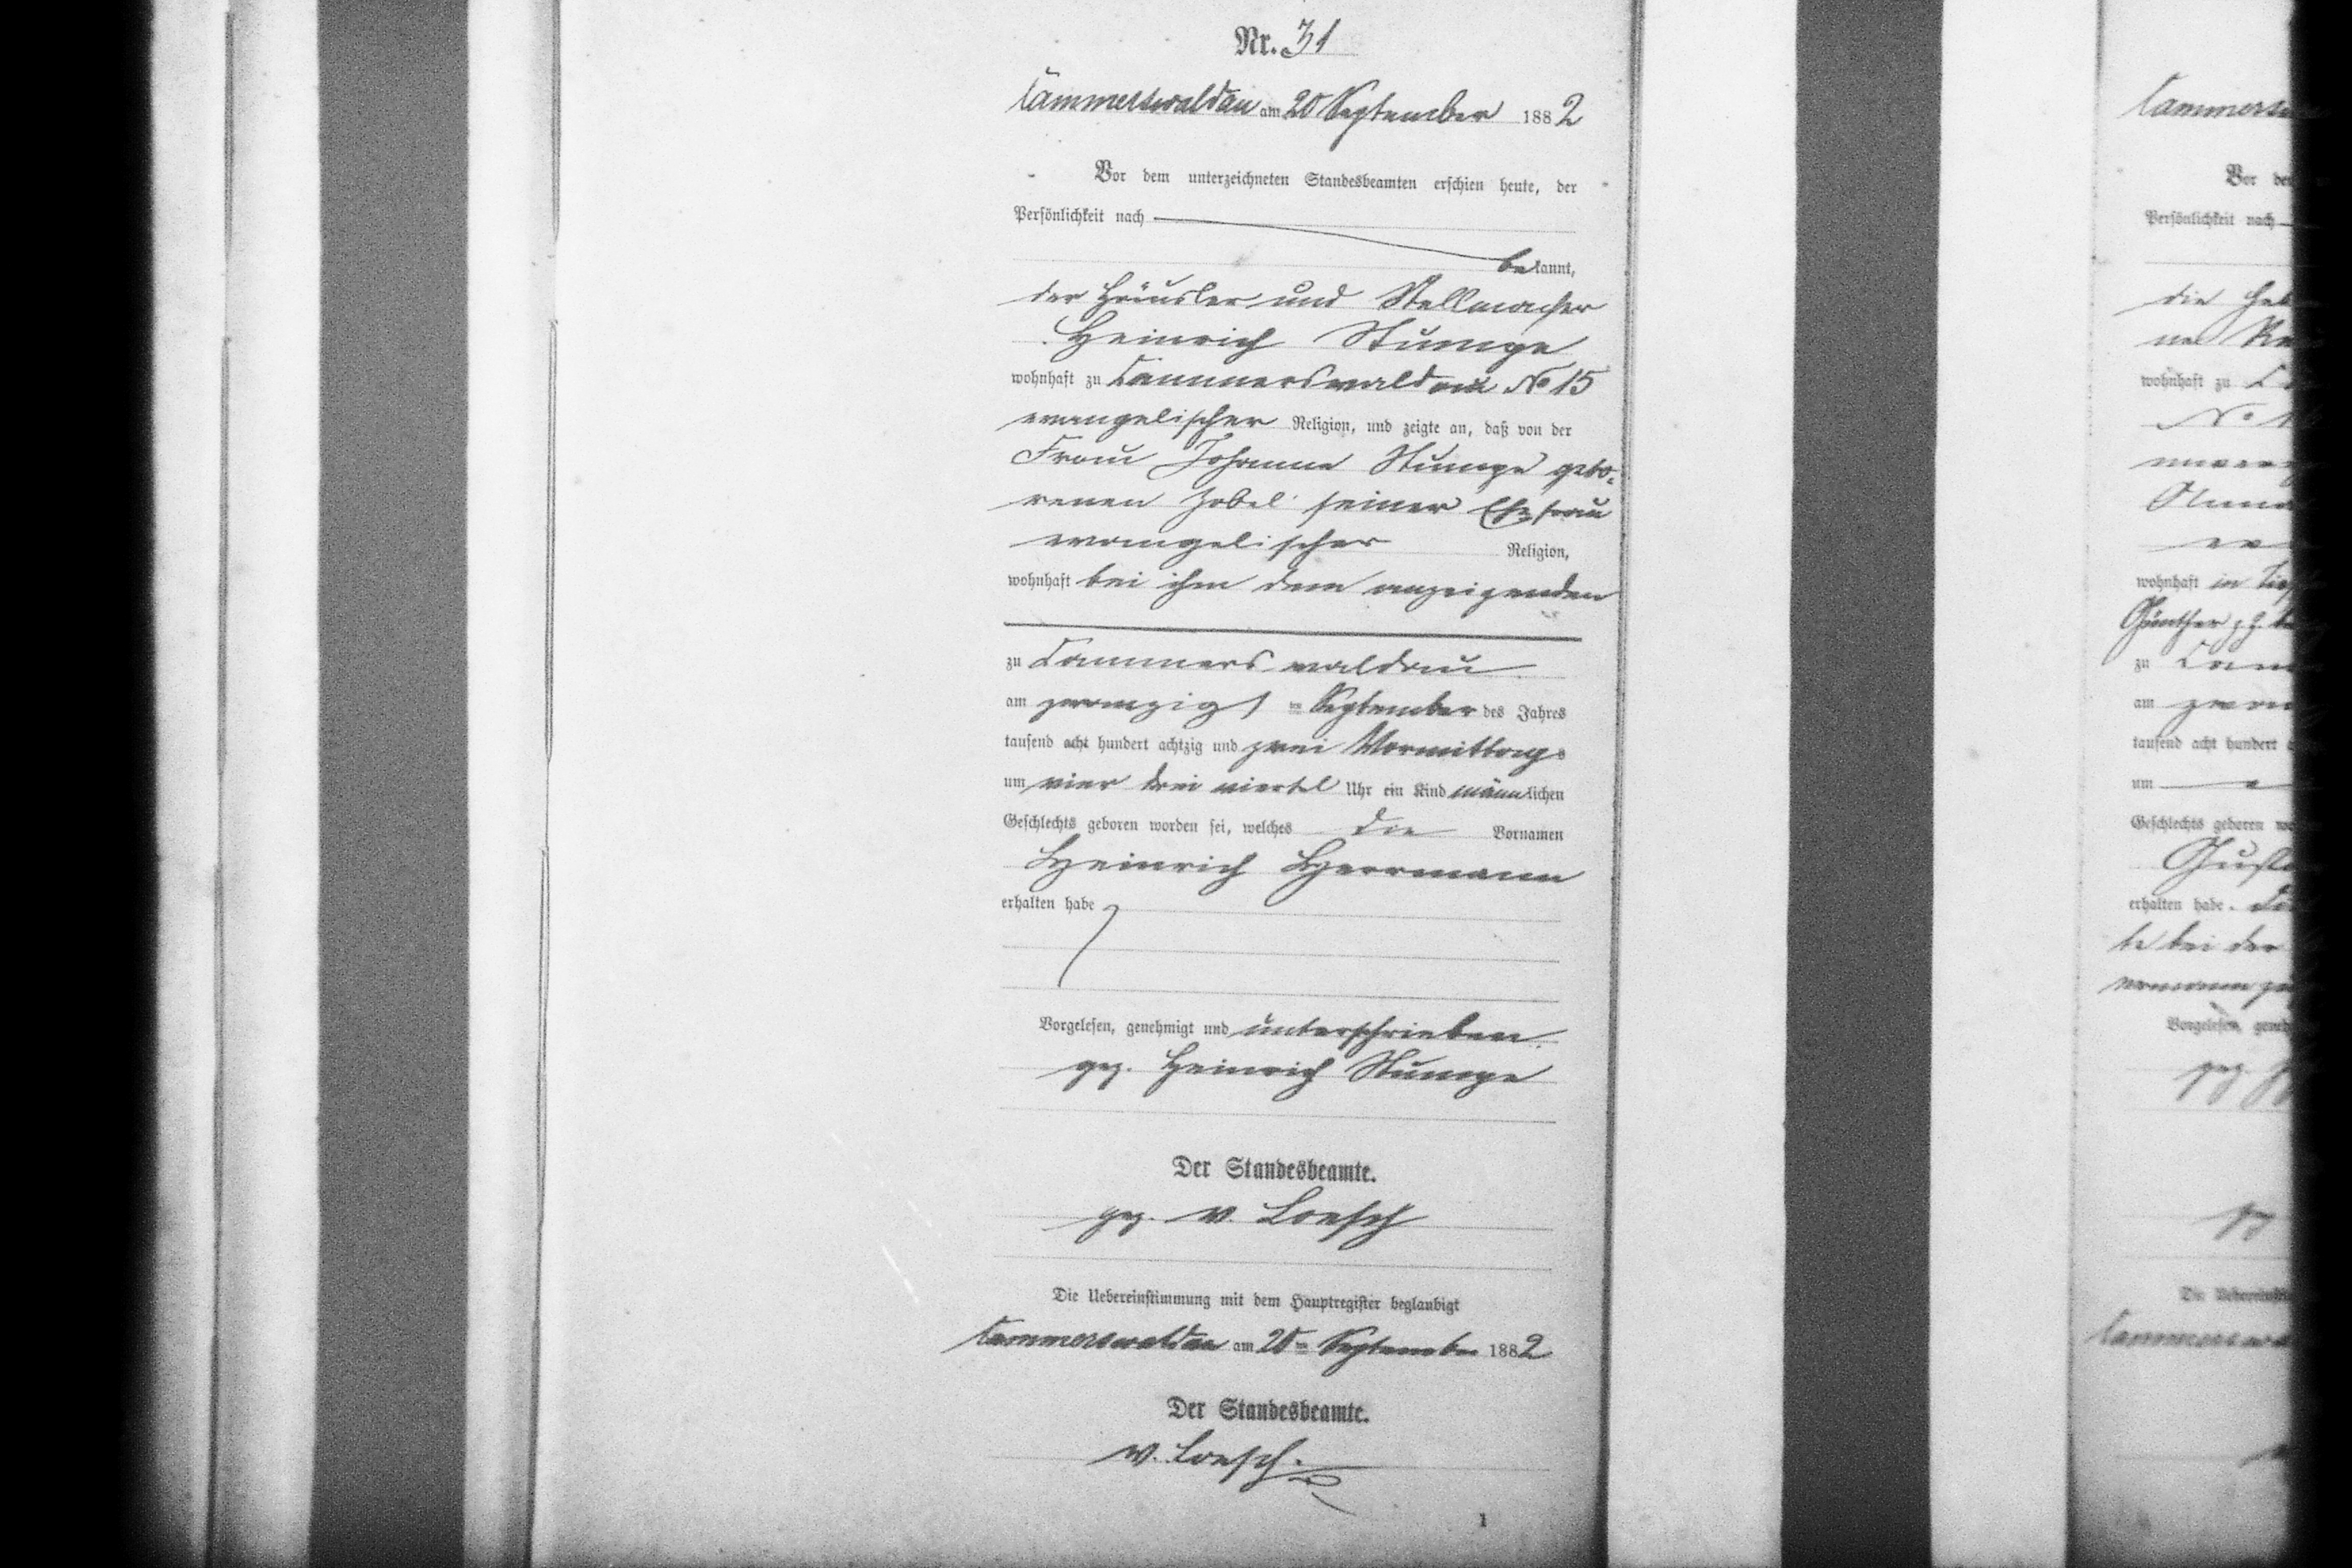 Nr. 31
Cammerswaldau am 20 September 1882
Vor dem unterzeichneten Standesbeamten erschien heute, der
Persönlichkeit nach
bekannt,
der Häusler und Stellmacher
Heinrich Stumpe
wohnhaft zu Cammerswaldau No 15
evangelischer Religion, und zeigte an, daß von der
Frau Johanne Stumpe gebo-
renen Zobel seiner Ehefrau
evangelischer Religion,
wohnhaft bei ihm dem anzeigenden
zu Cammerswaldau
am zwanzigsten September des Jahres
tausend acht hundert achtzig und zwei Vormittags
um vier drei viertel Uhr ein Kind männlichen
Geschlechts geboren worden sei, welches die Vornamen
Heinrich Herrmann
erhalten habe
Vorgelesen, genehmigt und unterschrieben.
gez. Heinrich Stumpe
Der Standesbeamte.
gez. v. Loesch
Die Uebereinstimmung mit dem Hauptregister beglaubigt
Cammerswaldau am 20ten September 1882
Der Standesbeamte.
v. Loesch.
1
Cammers
Vor de
Persönlichkeit nach
die
wohnhaft zu
No 1
wohnhaft in
Günther
zu Cam
am
tausend acht hundert
um
Geschlechts geboren
Gust
erhalten habe.
te bei der
Vorgelesen, geneh
gez
gez
Die Uebereinsti
Cammerswa